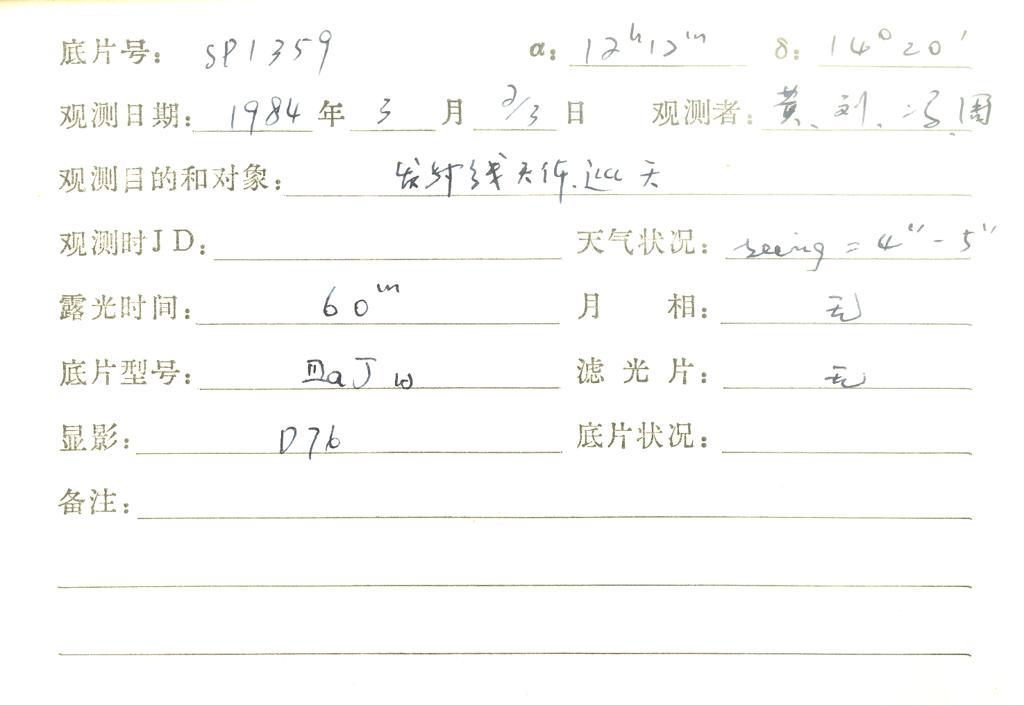 底片号: SP1359 α: 12ʰ12ᵐ δ: 14°20′
观测日期: 1984 年 3 月 2/3 日 观测者: 黄、刘、冯、周
观测目的和对象: 发射线天体巡天
观测时JD: 天气状况: seeing = 4″-5″
露光时间: 60ᵐ 月 相: 无
底片型号: ⅢaJ 滤 光 片: 无
显影: D76 底片状况:
备注: